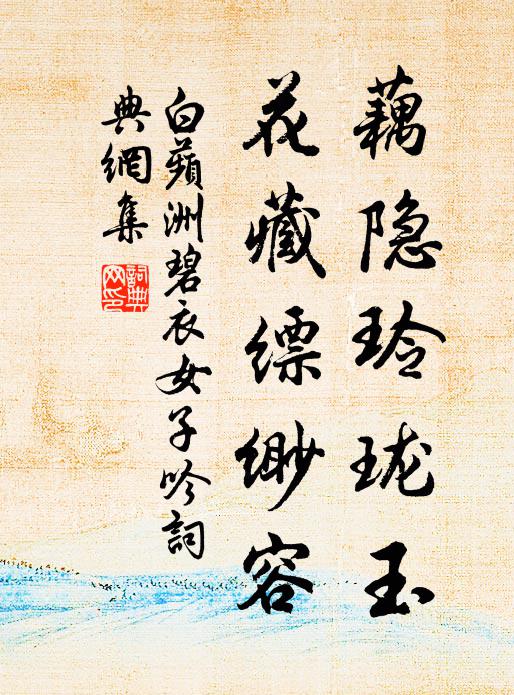 藕隐玲珑玉
花藏缥缈容
白蘋洲碧衣女子吟詞
典網集
詞典
网印